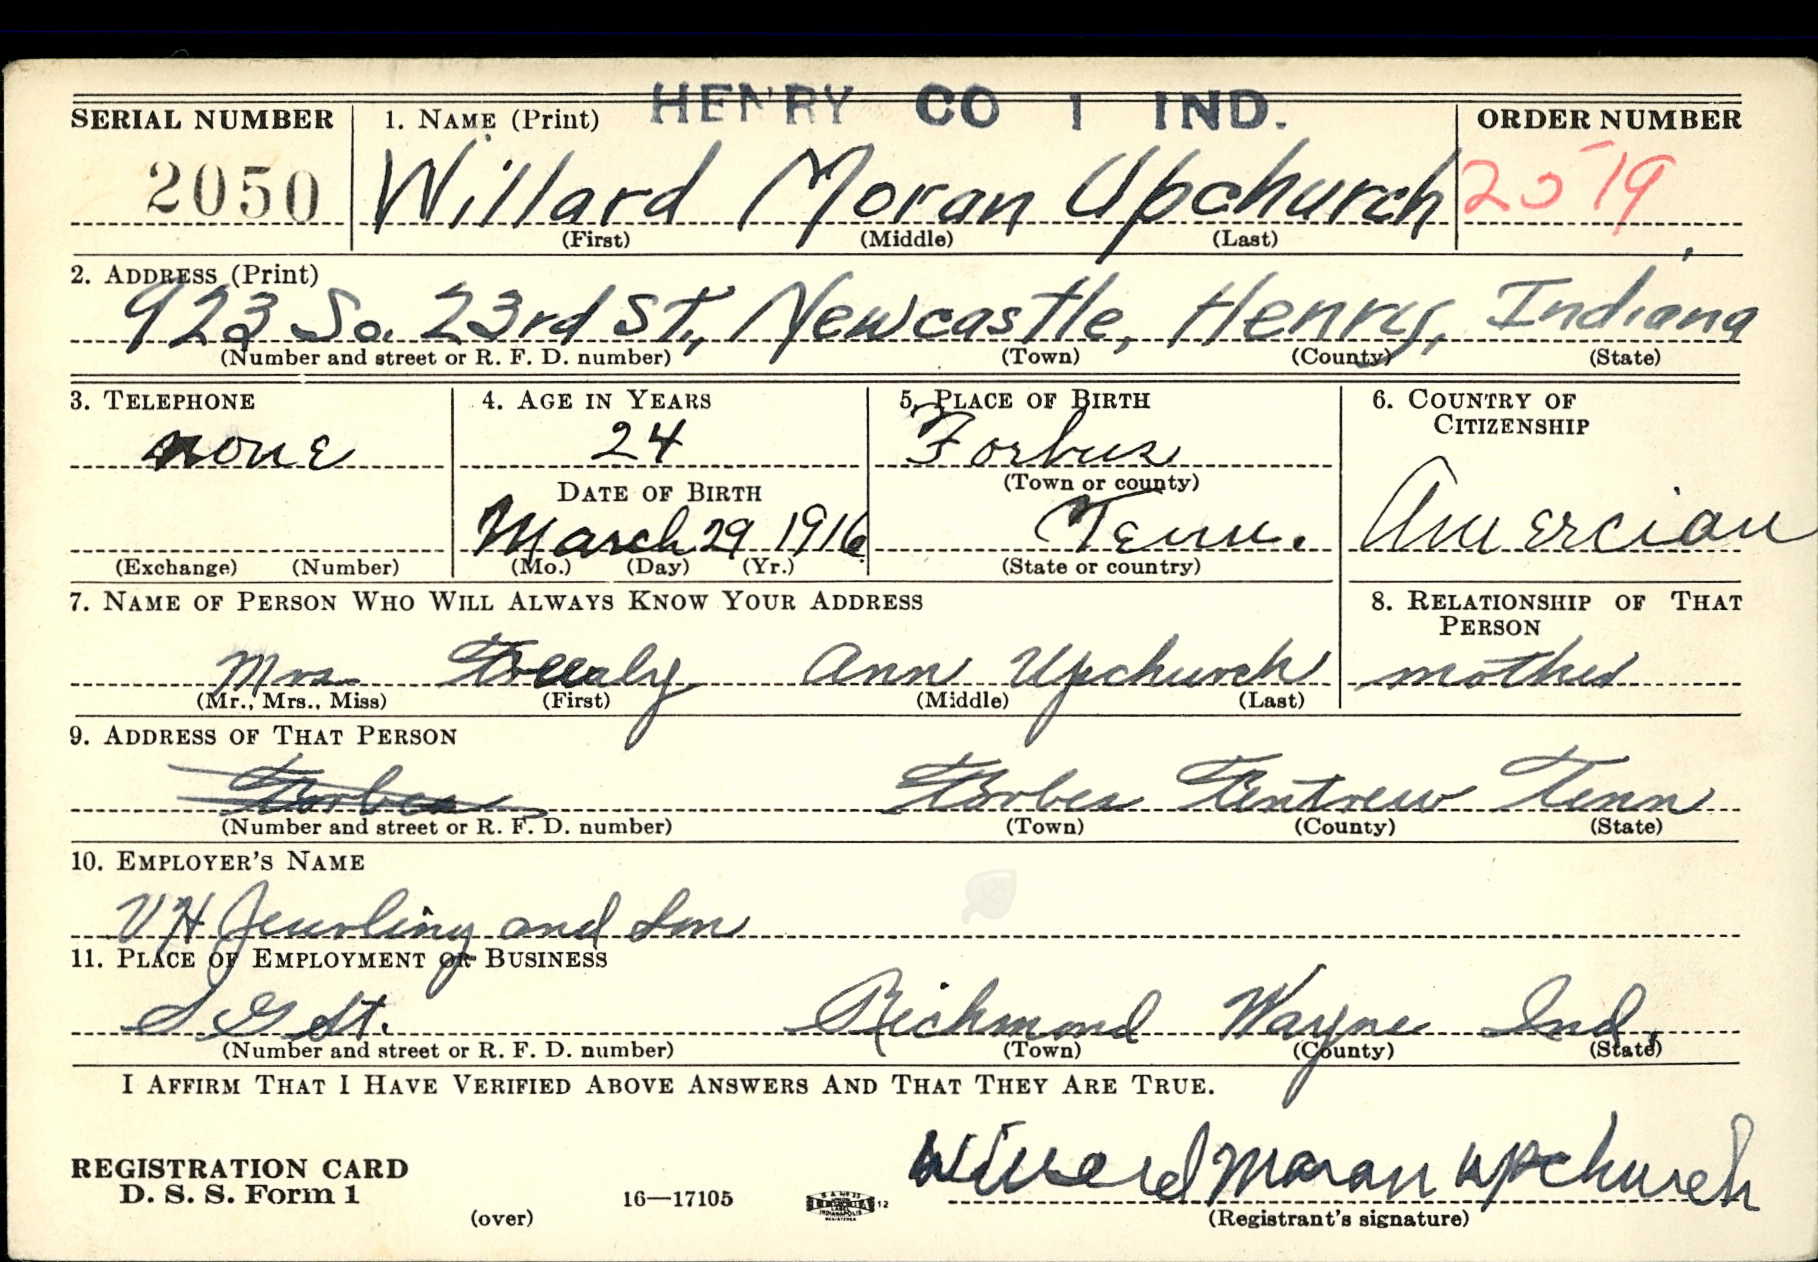 HENRY CO 1 IND.
SERIAL NUMBER 1. NAME (Print) ORDER NUMBER
2050 Willard Moran Upchurch 2519
(First) (Middle) (Last)
2. ADDRESS (Print)
923 So. 23rd St., Newcastle, Henry, Indiana
(Number and street or R. F. D. number) (Town) (County) (State)
3. TELEPHONE 4. AGE IN YEARS 5. PLACE OF BIRTH 6. COUNTRY OF CITIZENSHIP
none 24 Forbus
(Town or county)
DATE OF BIRTH
March 29 1916 Tenn. Amercian
(Exchange) (Number) (Mo.) (Day) (Yr.) (State or country)
7. NAME OF PERSON WHO WILL ALWAYS KNOW YOUR ADDRESS 8. RELATIONSHIP OF THAT PERSON
Mrs Ann Upchurch mother
(Mr., Mrs., Miss) (First) (Middle) (Last)
9. ADDRESS OF THAT PERSON
Forbes Forbes Fentrew Tenn
(Number and street or R. F. D. number) (Town) (County) (State)
10. EMPLOYER'S NAME
V H and Son
11. PLACE OF EMPLOYMENT OR BUSINESS
S G St. Richmond Wayne Ind,
(Number and street or R. F. D. number) (Town) (County) (State)
I AFFIRM THAT I HAVE VERIFIED ABOVE ANSWERS AND THAT THEY ARE TRUE.
Willard Moran Upchurch
REGISTRATION CARD
D. S. S. Form 1 16—17105 12
(over) (Registrant's signature)